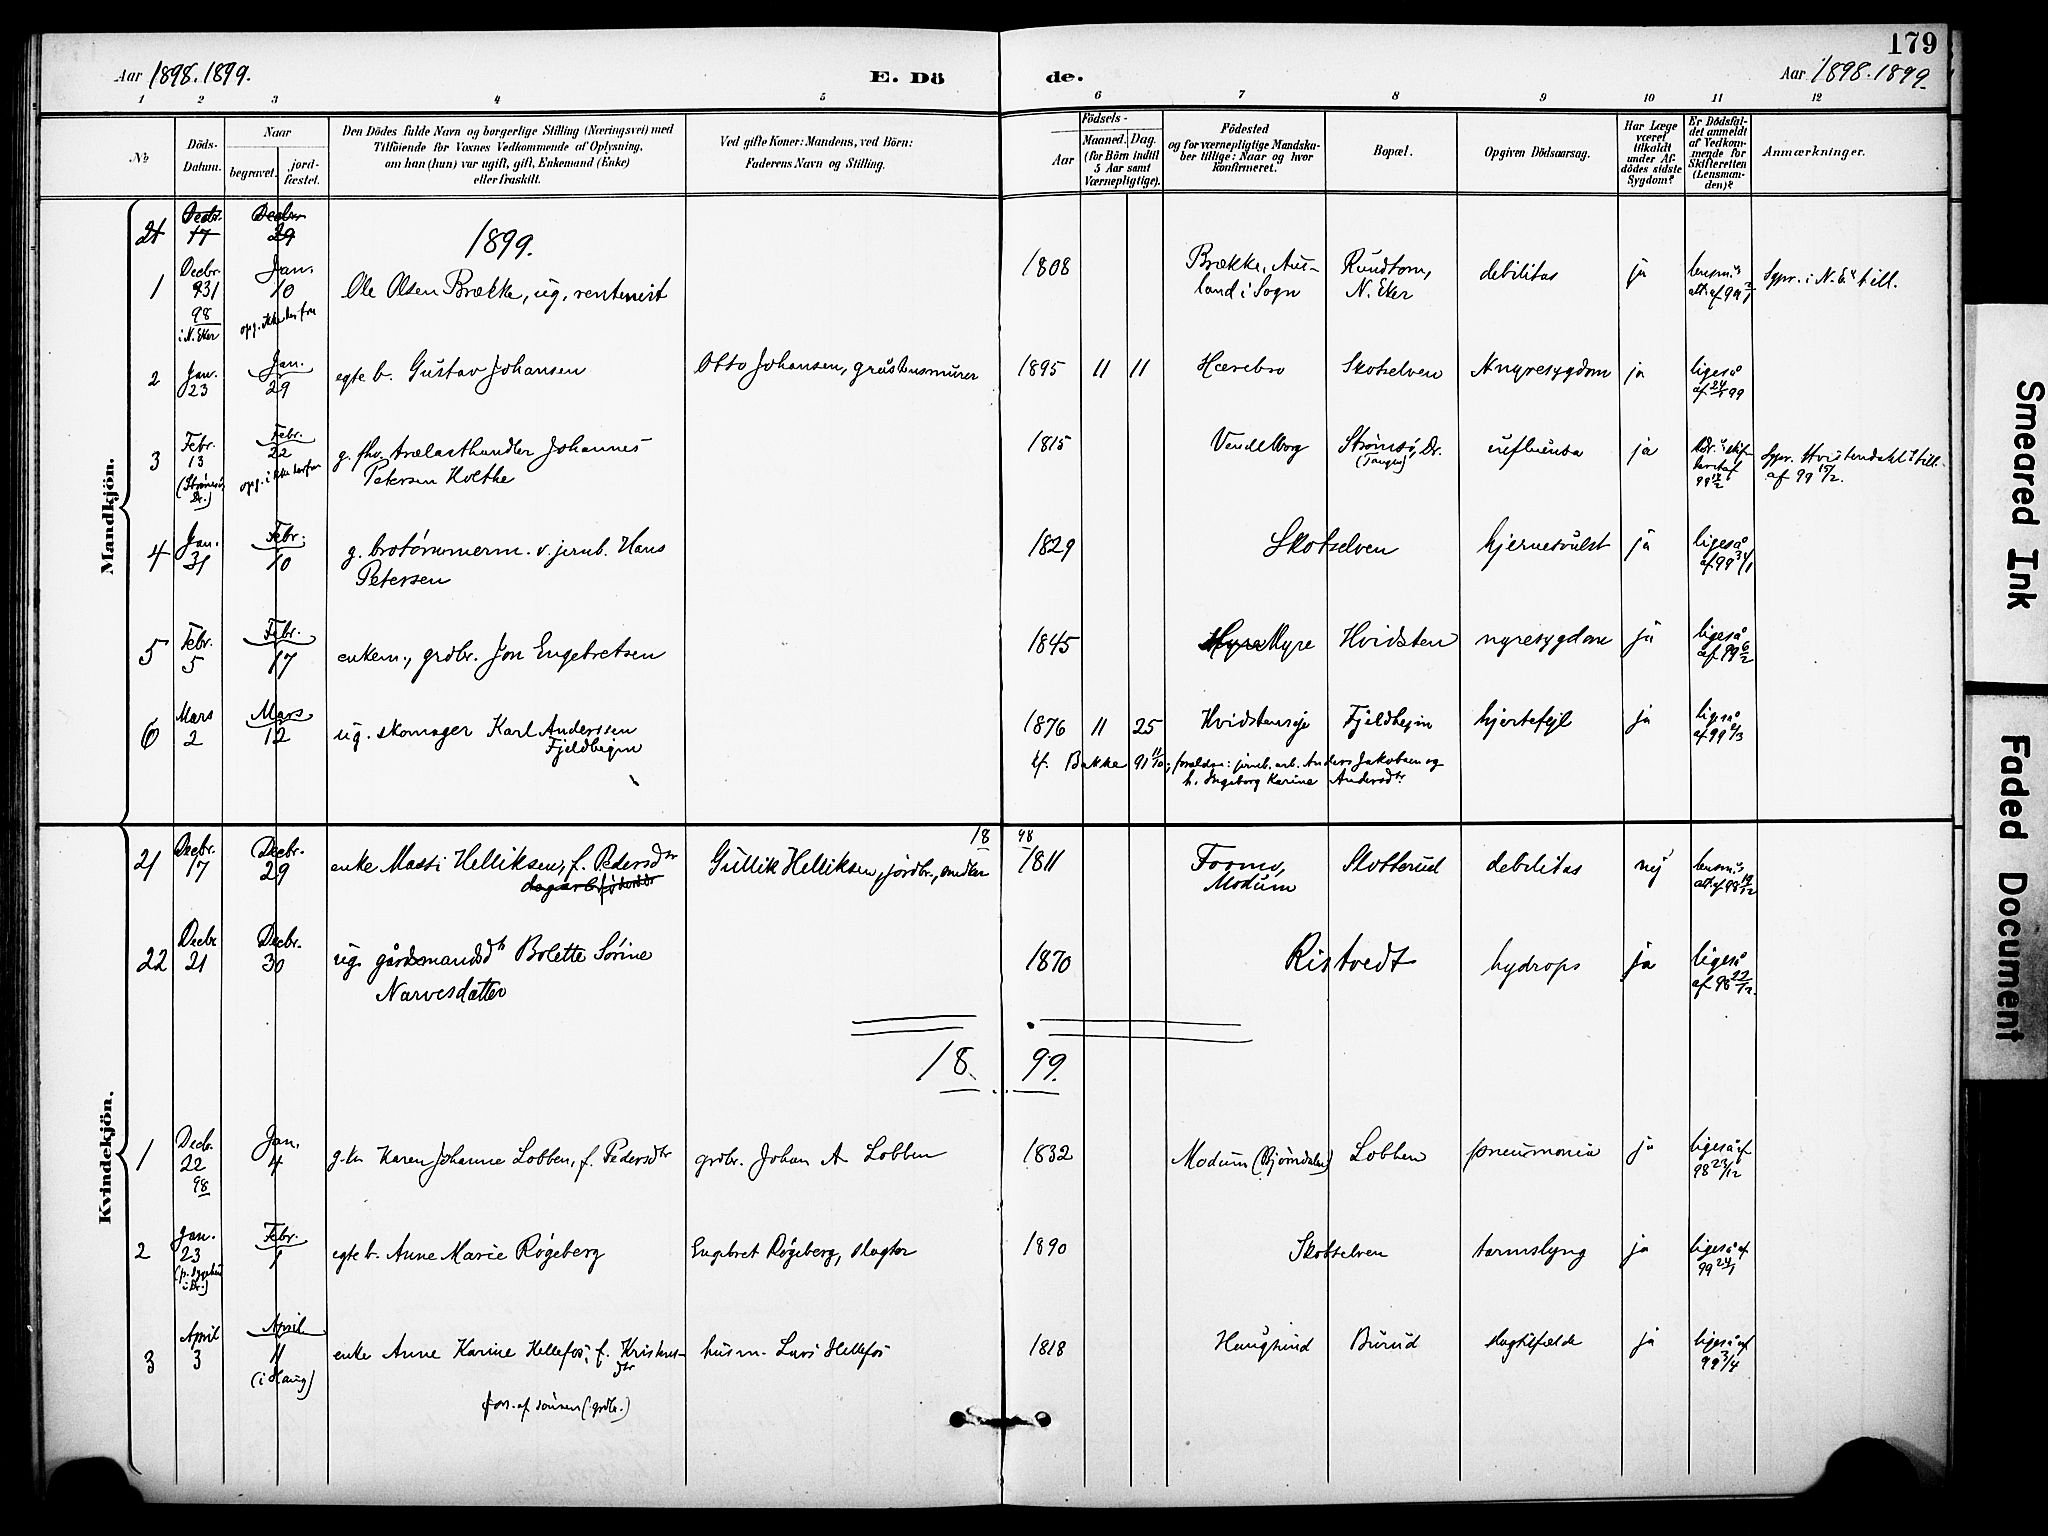 179
Aar 1898. 1899.
E. Dö
de.
Aar 1898. 1899.
1 2 3 4 5 6 7 8 9 10 11 12
No
Döds-
Datum.
Naar
begravet.
jord-
fæstet.
Den Dödes fulde Navn og borgerlige Stilling (Næringsvei) med
Tilföiende for Voxnes Vedkommende af Oplysning,
om han (hun) var ugift, gift, Enkemand (Enke)
eller fraskilt.
Ved gifte Koner: Mandens, ved Börn:
Faderens Navn og Stilling.
Födsels-
Aar
Maaned. Dag.
(for Börn indtil
5 Aar samt
Værnepligtige).
Födested
og for værnepligtige Mandska-
ber tillige: Naar og hvor
konfirmeret.
Bopæl.
Opgiven Dödsaarsag.
Har Læge
været
tilkaldt
under Af-
dödes sidste
Sygdom?
Er Dödsfal-
det anmeldt
af Vedkom-
mende for
Skifteretten
(Lensman-
den)?
Anmærkninger.
Mandkjön.
21 Decbr. 17 Decbr. 29
1899.
1 Decbr. 31 98 i N. Eker Jan. 10 opg. ikke herfra
Ole Olsen Brække, ug., rentenist
1808 Brække, Aur-
land i Sogn
Rundtom,
N. Eker
debilitas ja lensm.s
att. af 99 3/1
Spr. i N. E.s till.
2 Jan. 23 Jan. 29 egte b. Gustav Johansen Otto Johansen, gråstensmurer 1895 11 11 Hærebro Skotselven nyresygdom ja ligeså
af 24/1 99
3 Febr. 13 (Strømsø, Dr.) Febr. 22 opg. ikke herfra
g. fhv. trælasthandler Johannes
Petersen Holtke
1815 Vendelborg Strømsø, Dr.
(Tangen)
influensa ja
99 14/2
Spr. Hvistendahls till.
af 99 15/2.
4 Jan. 31 Febr. 10 g. brotømmerm. v. jernb. Hans
Petersen
1829 Skotselven hjernesvulst ja ligeså
af 99 31/1
5 Febr. 5 Febr. 17 enkem., grdbr. Jon Engebretsen 1845 Myre Hvidsten nyresygdom ja ligeså
af 99 6/2
6 Mars 2 Mars 12 ug. skomager Karl Anderssen
Fjeldhegin
1876 11 25 Hvidsteneje Fjeldhegin hjertefejl ja ligeså
af 99 6/3
kf. Bakke 91 11/10; forældre: jernb. arb. Anders Jakobsen og
h. Ingeborg Karine Andersdtr
Kvindekjön.
18 98
21 Decbr. 17 Decbr. 29 enke Massi Helliksen, f. Pedersdtr Gullik Helliksen, jordbr., smed 1811 Formo,
Modum
Slotterud debilitas nej lensm.s
att. af 98 19/12
22 Decbr. 21 Decbr. 30 ug. gårdmandsdtr Bolette Sørine
Narvesdatter
1870 Ristvedt hydrops ja ligeså
af 98 22/12.
18 99.
1 Decbr. 22 98 Jan. 4 g. k. Karen Johanne Lobben, f. Pedersdtr grdbr. Johan A Lobben 1832 Modum (Bjørndalen) Lobben pneumonia ja ligeså af
98 23/12
2 Jan. 23 (p. sygehus i Dr.) Febr. 1 egte b. Anne Marie Røgeberg Engebret Røgeberg, slagter 1890 Skotselven tarmslyng ja ligeså af
99 24/1
3 April 3 April 11 (i Haug) enke Anne Karine Hellefos, f. Kristens-
dtr
husm. Lars Hellefos 1818 Haugsund Burud slagtilfælde ja ligeså af
99 3/4
fors. af sønnen (: grdbr.)
Smeared Ink
Faded Document